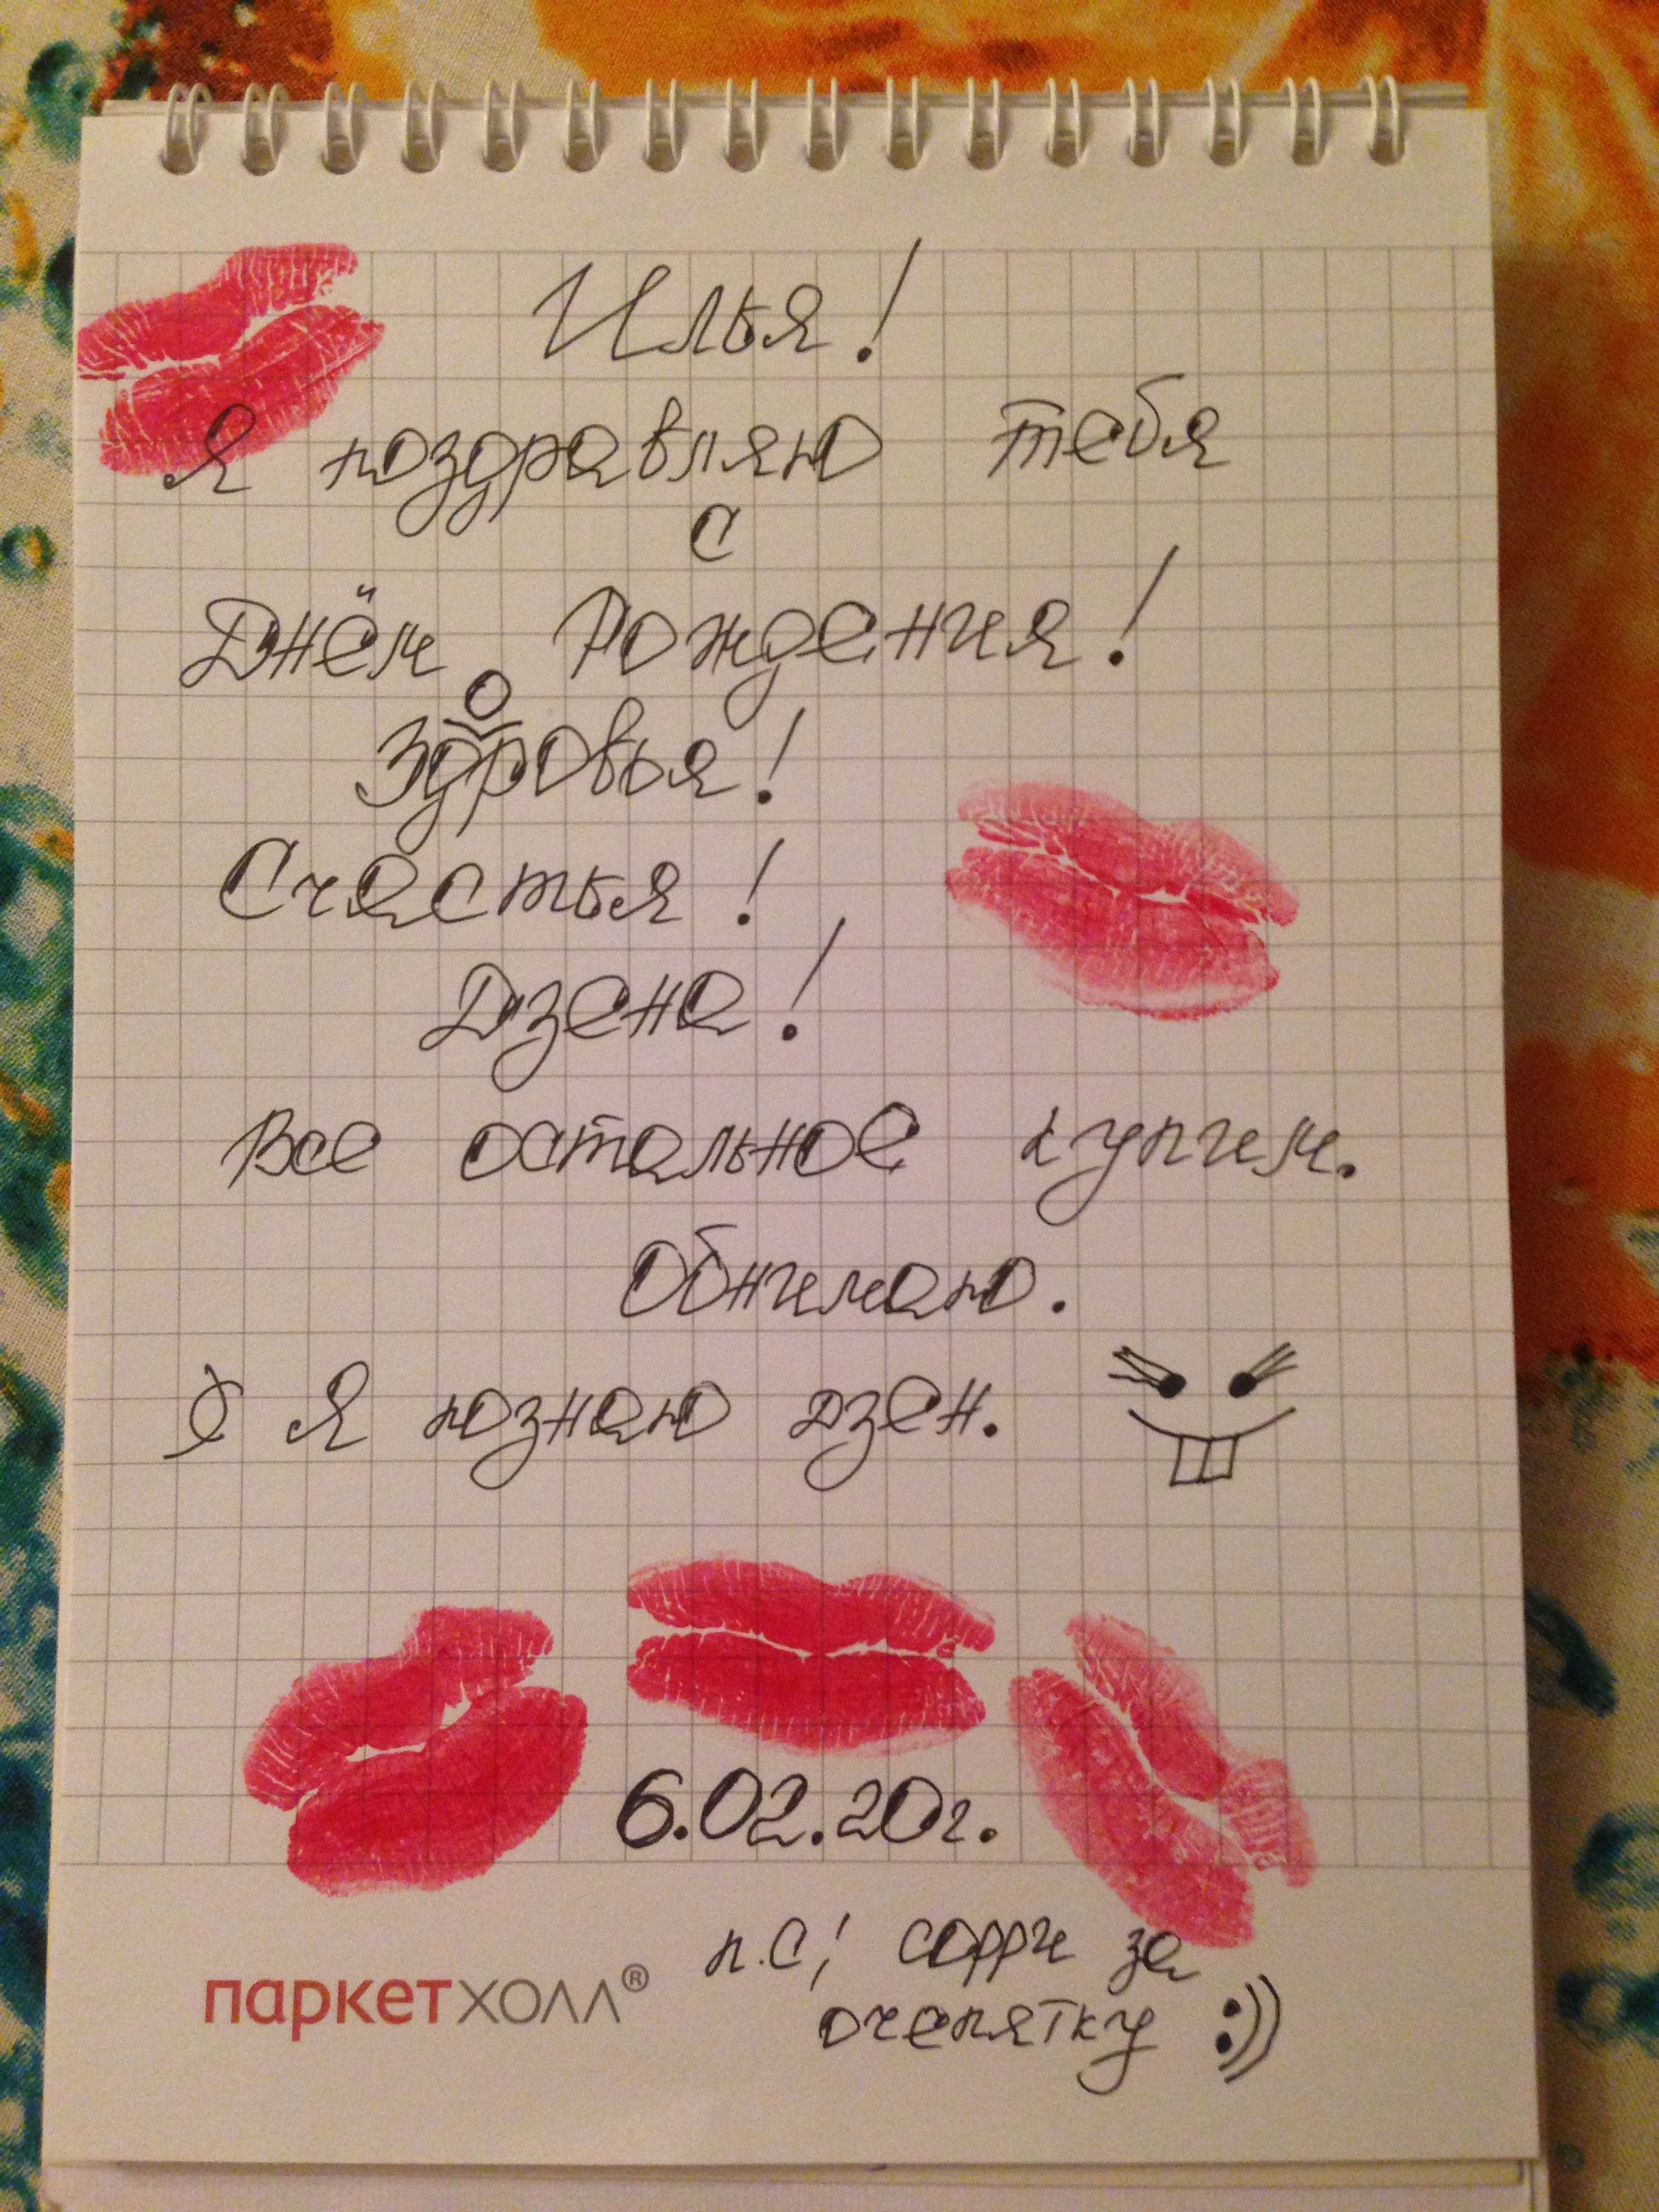 Илья!
Я поздравляю тебя
с
Днём Рождения!
Здоровья!
Счастья!
Дзена!
Все остальное купим.
Обнимаю.
Я познаю дзен.
6.02.20г.
п.с! сорри за
очепятку :))
паркетхолл®